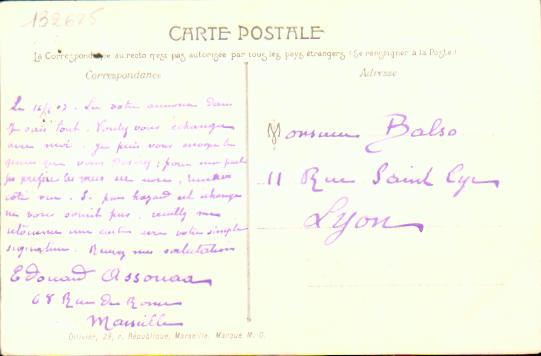 132675
CARTE POSTALE
La Correspondance au recto n'est pas autorisée par tous les pays étrangers (Se renseigner à la Poste.)
Correspondance
Adresse
Le 16/6 07. Lu votre annonce dans
Je sais tout. Voulez vous échanger
avec moi. Je puis vous envoyer le
genre que vous ; pour ma part
je préfère les vues en noir,
côté vue. Si par hasard cet échange
ne vous sourit pas, veuillez me
retourner ma carte avec votre simple
signature. Recevez mes salutations
Edouard Assouad
68 Rue de Rome
Marseille
Monsieur Balso
11 Rue Saint Cyr
Lyon
Ollivier, 29, r. République, Marseille. Marque M.O.